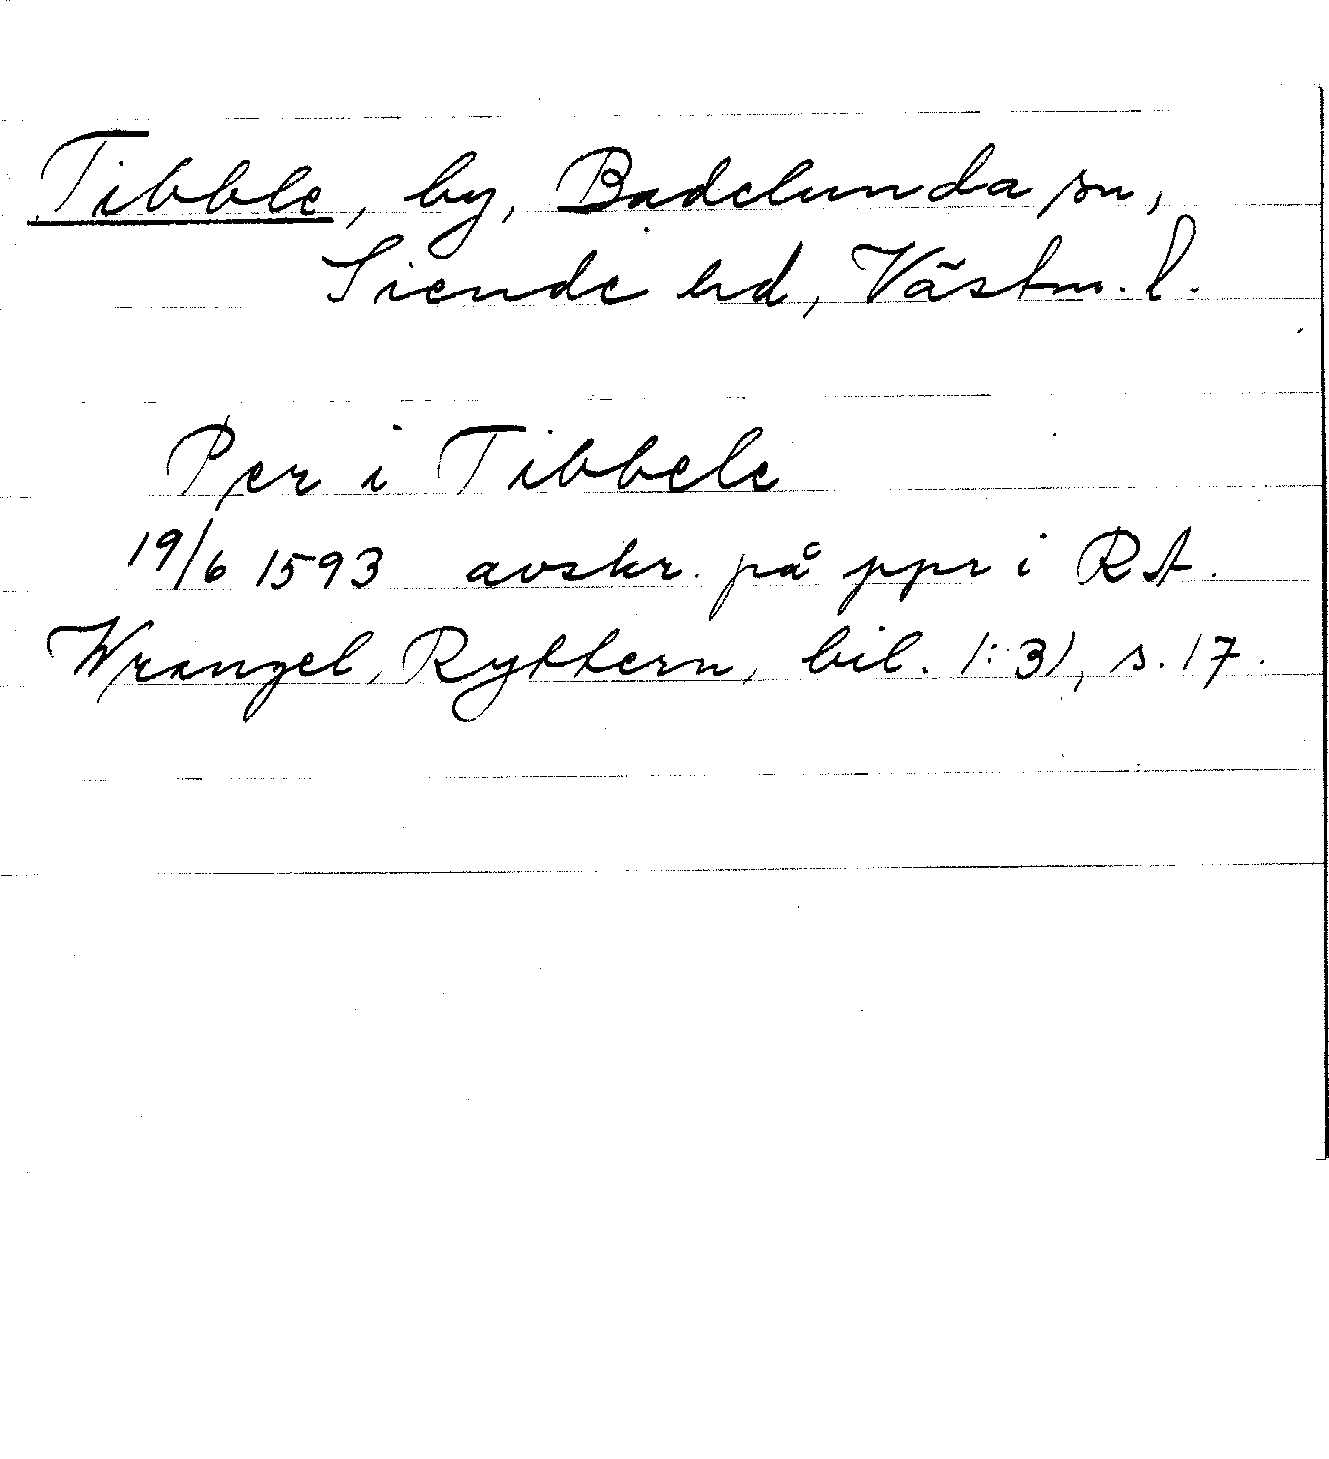 Tibble, by, Badelunda sn,
Siende hd, Västm. l.
Per i Tibbele
19/6 1593 avskr. på ppr i RA.
Wrangel, Ryttern, bil. 1:3), s. 17.